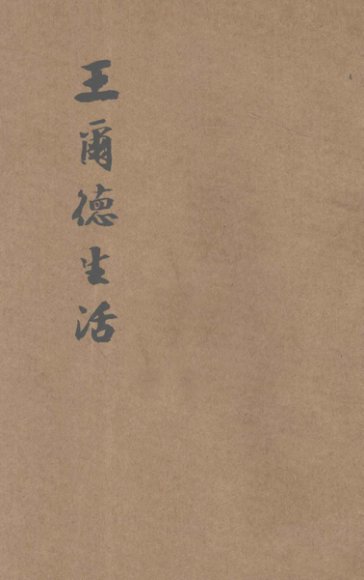 王爾德生活